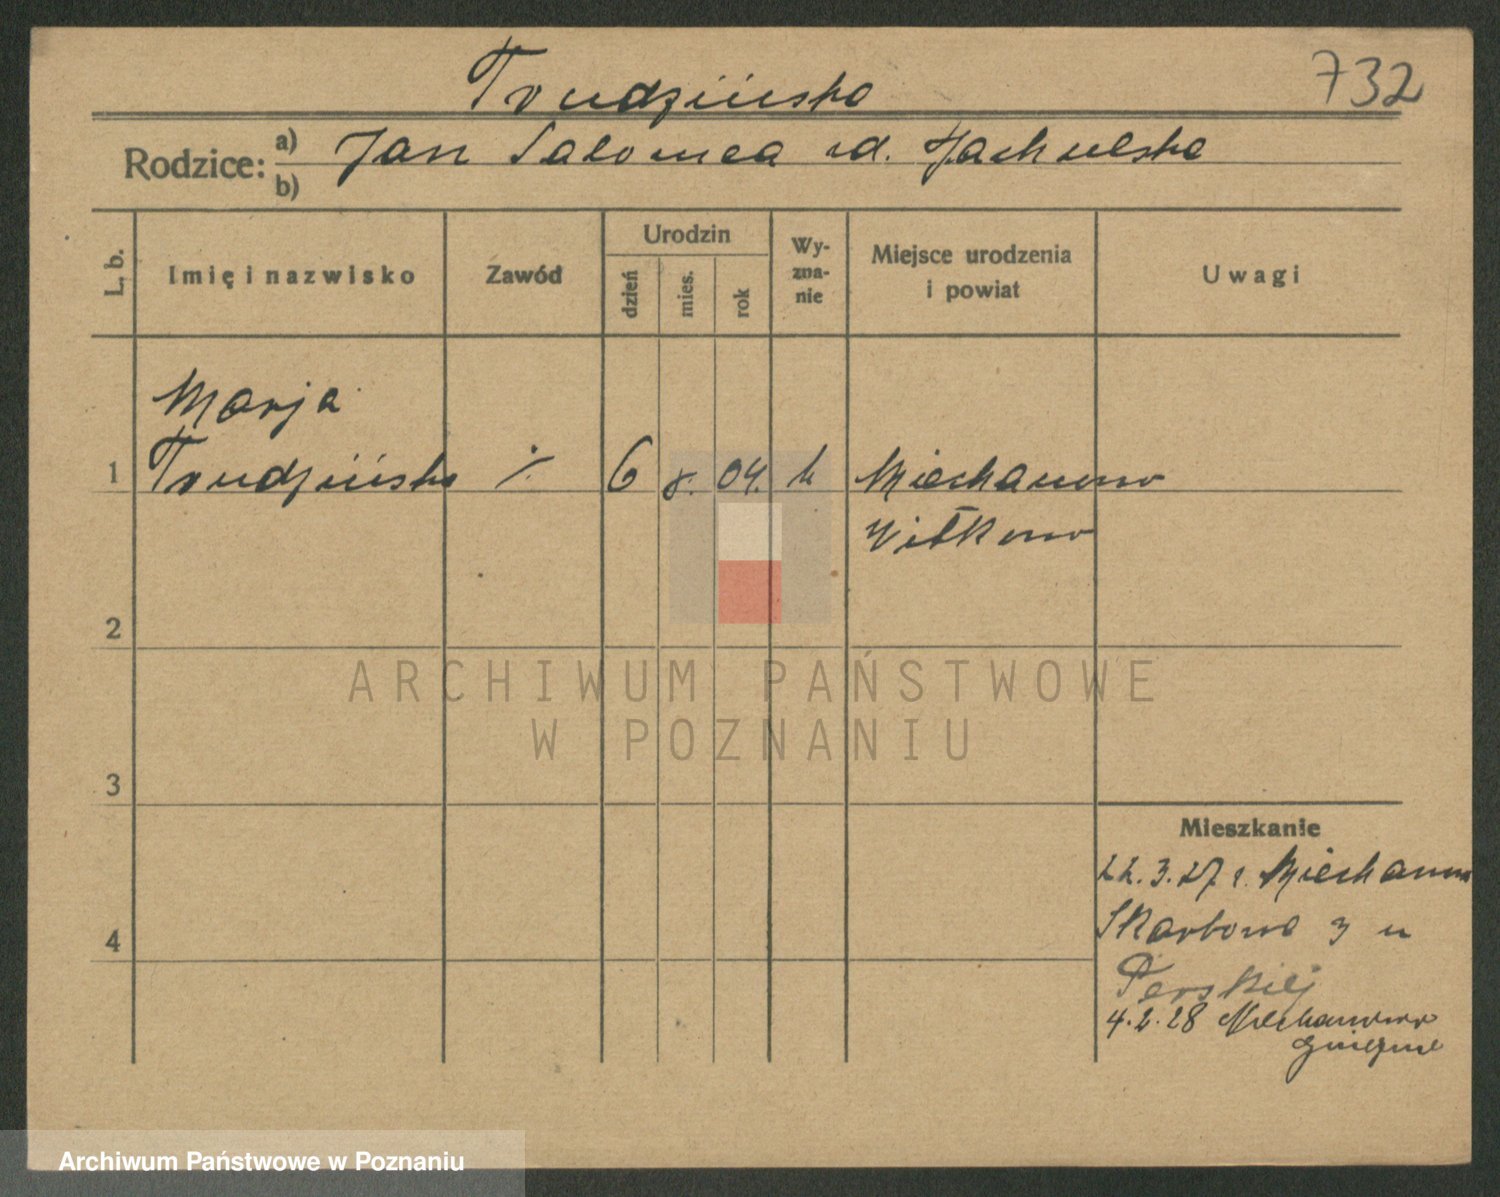 Trudzińska
732
Rodzice: a) Jan Salomea
b)
L. b. Imię i nazwisko Zawód Urodzin dzień mies. rok Wy-zna-nie Miejsce urodzenia i powiat Uwagi
Marja
1 Trudzińska ./. 6 8. 04. k Miechanowo
Witkowo
2
3
4
Mieszkanie
22.3.27 Miechanowo
Skarbowa 3 u
Perskiej
4.2.28 Mechanowo
Gniezno
ARCHIWUM PAŃSTWOWE
W POZNANIU
Archiwum Państwowe w Poznaniu